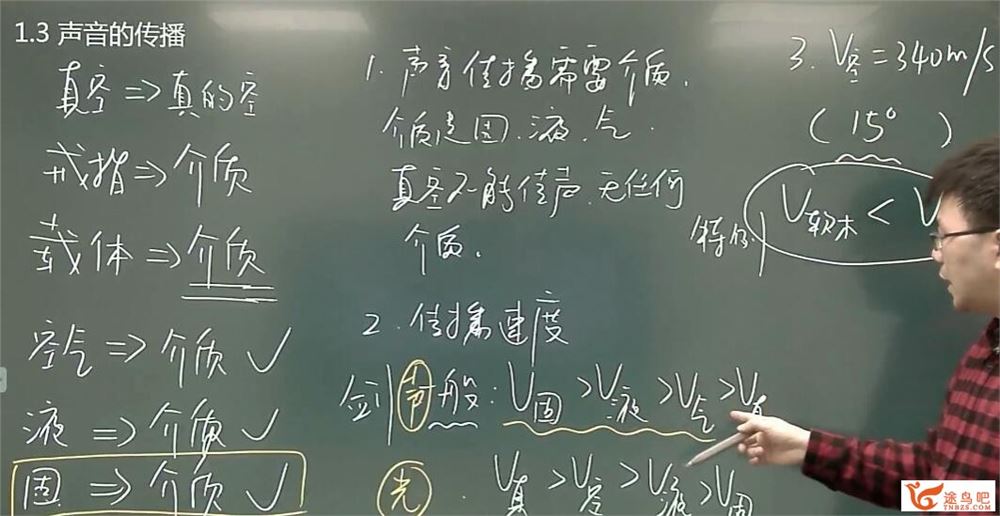 1.3 声音的传播
真空⇒真的空
戒指⇒介质
载体⇒介质
空气⇒介质✓
液⇒介质✓
固⇒介质✓
1. 声音传播需要介质.
介质是固.液.气.
真空不能传声.无任何
介质.
2. 传播速度
声 般: V固>V液>V气>V真
光. V真>V空>V液>V固
3. V空=340m/s
(15°)
特例
V软木<V
途鸟吧
TNBZS.COM